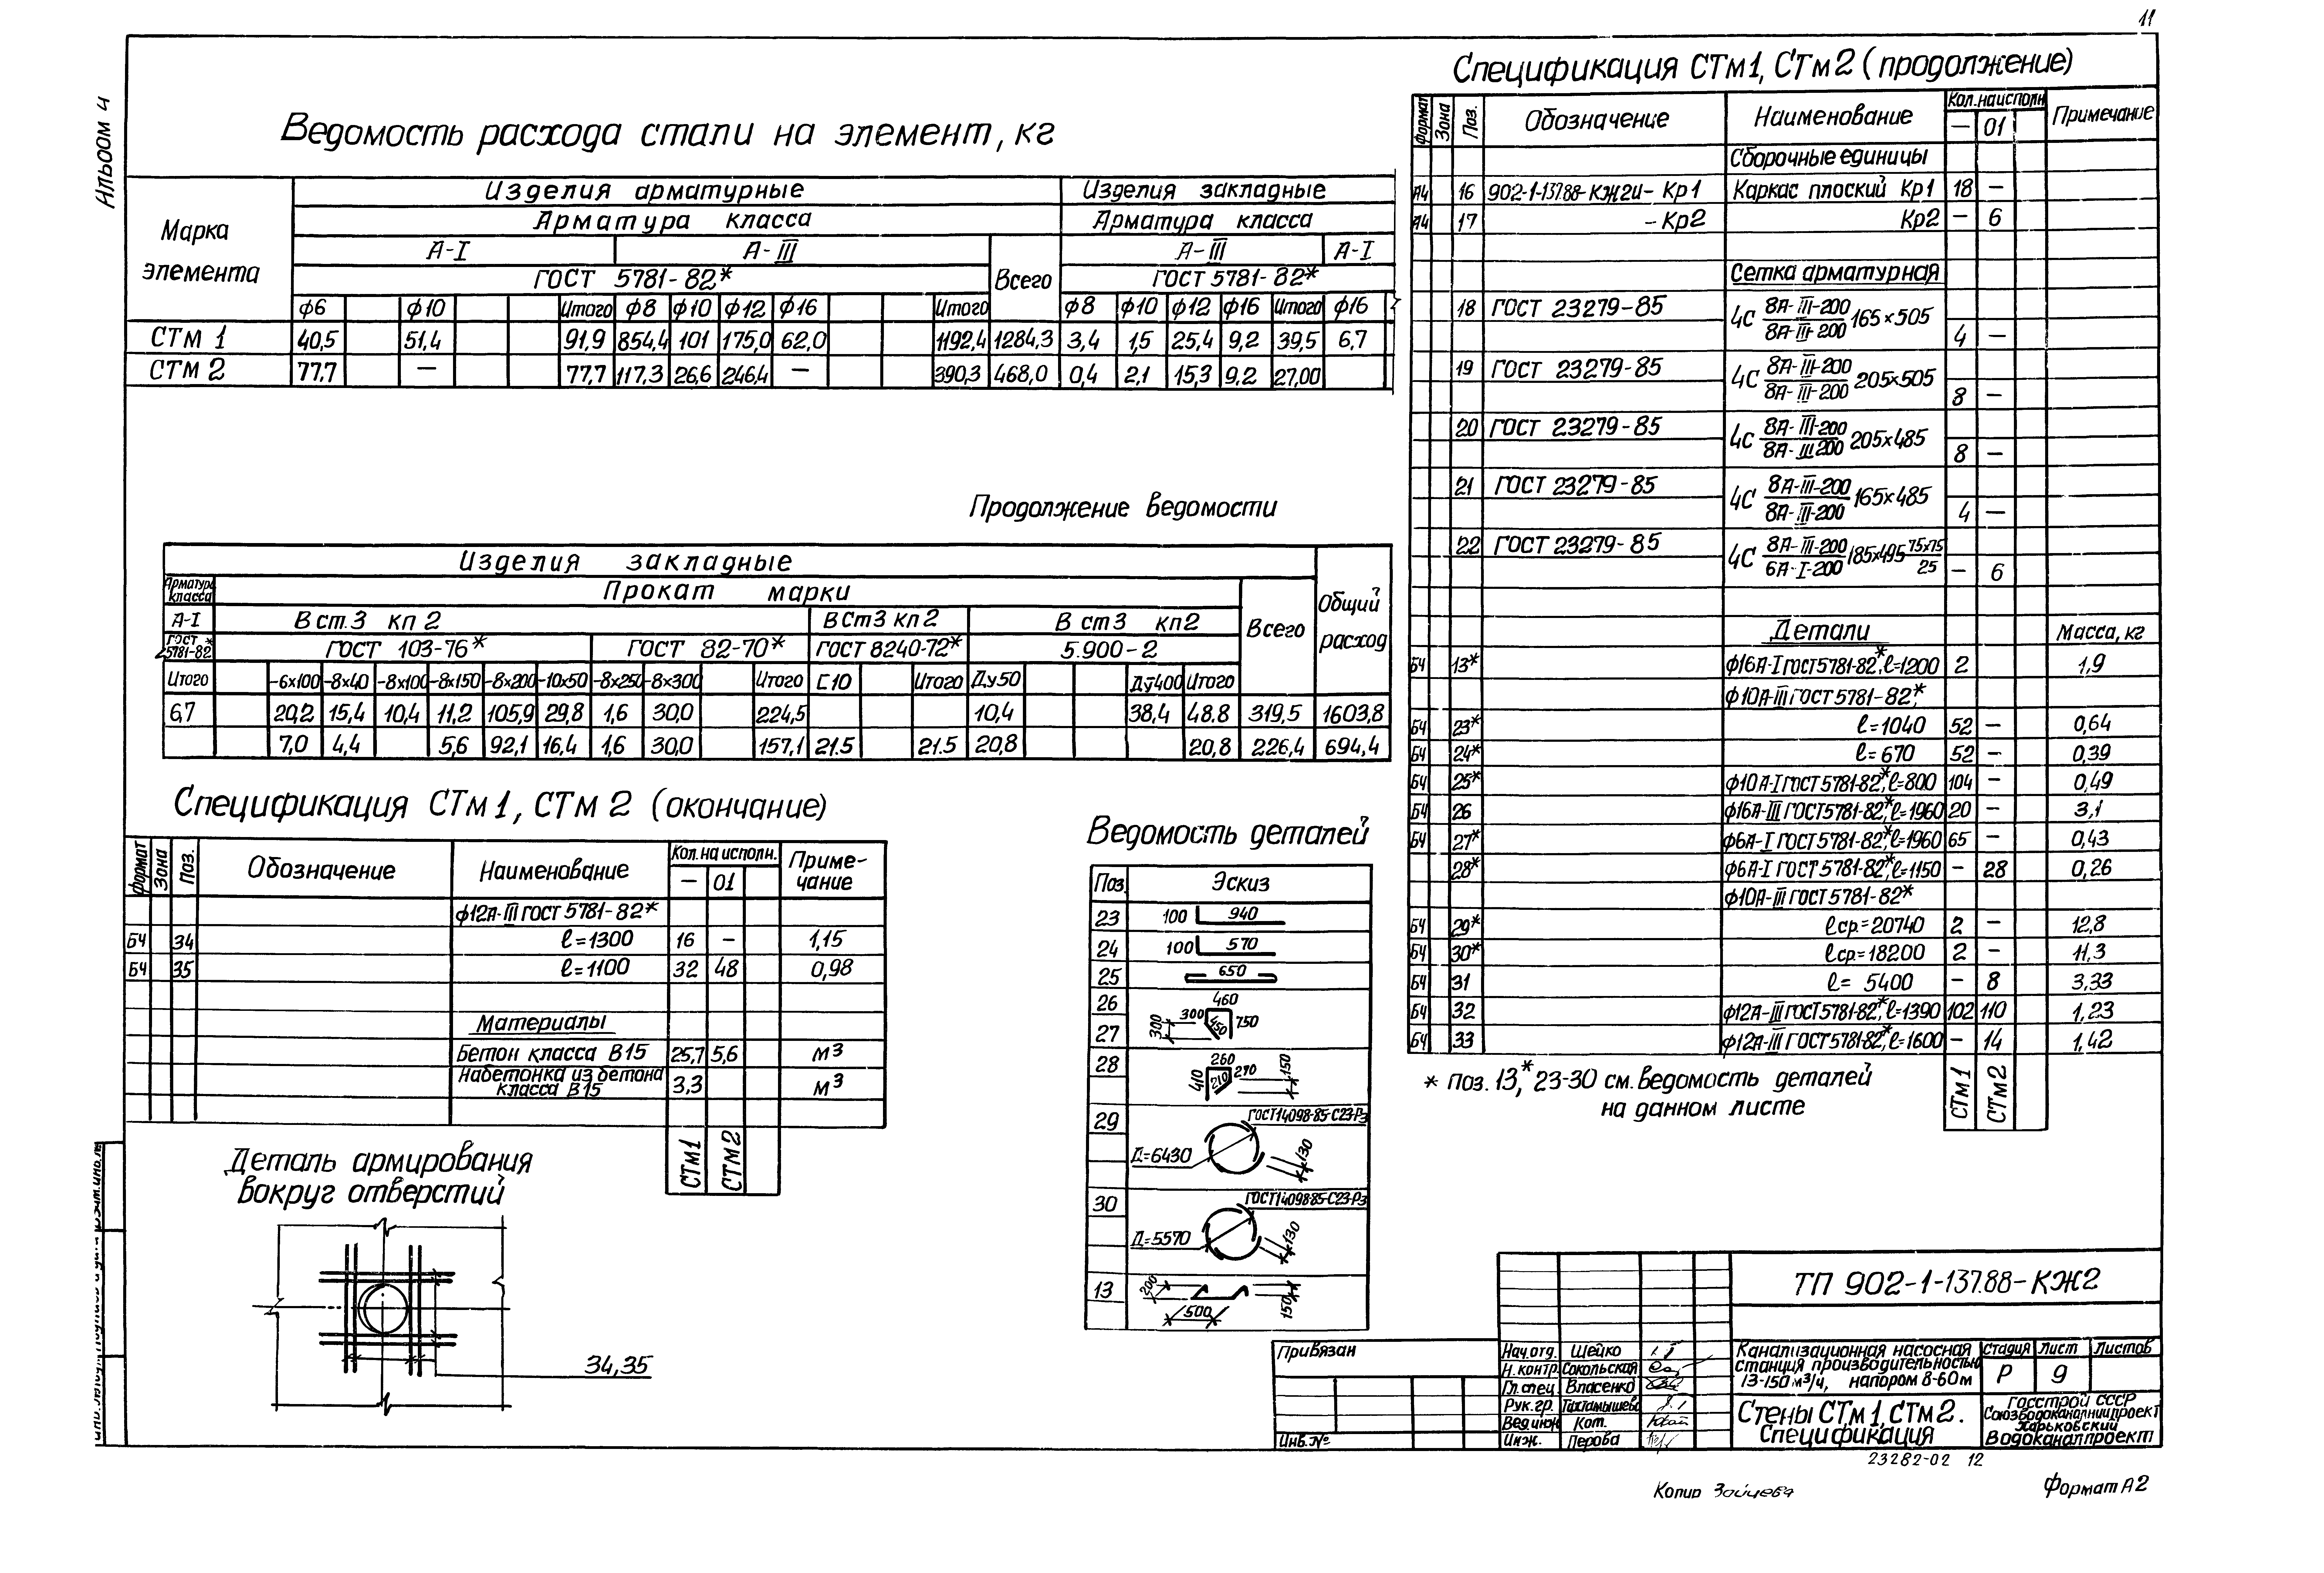 11
Альбом 4
Ведомость расхода стали на элемент, кг
Марка элемента
Изделия арматурные
Изделия закладные
Арматура класса
Арматура класса
А-I
А-III
Всего
А-III
А-I
ГОСТ 5781-82*
ГОСТ 5781-82*
ф6 ф10 Итого ф8 ф10 ф12 ф16 Итого ф8 ф10 ф12 ф16 Итого ф16
СТм 1 40,5 51,4 91,9 854,4 101 175,0 62,0 1192,4 1284,3 3,4 1,5 25,4 9,2 39,5 6,7
СТм 2 77,7 — 77,7 117,3 26,6 246,4 — 390,3 468,0 0,4 2,1 15,3 9,2 27,00
Продолжение ведомости
Изделия закладные
Общий расход
Арматура класса
Прокат марки
Всего
А-I
В ст.3 кп 2
В Ст3 кп2
В ст3 кп2
ГОСТ 5781-82*
ГОСТ 103-76*
ГОСТ 82-70*
ГОСТ 8240-72*
5.900-2
Итого -6х100 -8х40 -8х100 -8х150 -8х200 -10х50 -8х250 -8х300 Итого С10 Итого Ду50 Ду400 Итого
6,7 20,2 15,4 10,4 11,2 105,9 29,8 1,6 30,0 224,5 10,4 38,4 48.8 319,5 1603,8
7,0 4,4 5,6 92,1 16,4 1,6 30,0 157,1 21.5 21.5 20,8 20,8 226,4 694,4
Спецификация СТм1, СТм 2 (окончание)
Формат Зона Поз. Обозначение Наименование Кол. на исполн. Примечание
— 01
ф12А-III ГОСТ 5781-82*
БЧ 34 ℓ=1300 16 — 1,15
БЧ 35 ℓ=1100 32 48 0,98
Материалы
Бетон класса В15 25,7 5,6 м³
Набетонка из бетона
класса В15 3,3 м³
СТм1 СТм2
Деталь армирования
вокруг отверстий
34,35
Ведомость деталей
Поз. Эскиз
23 100 940
24 100 570
25 650
26 460
27 300 300 450 750
28 260 410 210 270 150
29 ГОСТ14098-85-С23-Рэ
Д=6430 130
30 ГОСТ14098-85-С23-Рэ
Д=5570 130
13 200 500 150
Спецификация СТм1, СТм2 (продолжение)
Формат Зона Поз. Обозначение Наименование Кол. на исполн Примечание
— 01
Сборочные единицы
А4 16 902-1-137.88-КЖ2И-Кр1 Каркас плоский Кр1 18 —
А4 17 -Кр2 Кр2 — 6
Сетка арматурная
18 ГОСТ 23279-85 4С 8А-III-200/8А-III-200 165×505 4 —
19 ГОСТ 23279-85 4С 8А-III-200/8А-III-200 205×505 8 —
20 ГОСТ 23279-85 4С 8А-III-200/8А-III 200 205×485 8 —
21 ГОСТ 23279-85 4С 8А-III-200/8А-III-200 165×485 4 —
22 ГОСТ 23279-85 4С 8А-III-200/6А-I-200 185×495 75×75/25 — 6
Детали Масса, кг
БЧ 13* ф16А-I ГОСТ 5781-82*, ℓ=1200 2 1,9
ф10А-III ГОСТ 5781-82*,
БЧ 23* ℓ=1040 52 — 0,64
БЧ 24* ℓ=670 52 — 0,39
БЧ 25* ф10А-I ГОСТ 5781-82*, ℓ=800 104 — 0,49
БЧ 26 ф16А-III ГОСТ 5781-82*, ℓ=1960 20 — 3,1
БЧ 27* ф6А-I ГОСТ 5781-82*, ℓ=1960 65 — 0,43
БЧ 28* ф6А-I ГОСТ 5781-82*, ℓ=1150 — 28 0,26
ф10А-III ГОСТ 5781-82*
БЧ 29* ℓср.=20740 2 — 12,8
БЧ 30* ℓср.=18200 2 — 11,3
БЧ 31 ℓ= 5400 — 8 3,33
БЧ 32 ф12А-III ГОСТ 5781-82*, ℓ=1390 102 110 1,23
БЧ 33 ф12А-III ГОСТ 5781-82*, ℓ=1600 — 14 1,42
СТм1 СТм2
* Поз. 13*, 23-30 см. ведомость деталей
на данном листе
Привязан
Инв.№
Нач.отд. Шейко
Н.контр. Сокольская
Гл.спец. Власенко
Рук.гр.
Вед.инж Кот.
Инж. Перова
ТП 902-1-137.88-КЖ2
Канализационная насосная
станция производительностью
13-150 м³/ч, напором 8-60м
Стадия Лист Листов
Р 9
Стены СТм1, СТм2.
Спецификация
Госстрой СССР
Союзводоканалниипроект
Харьковский
Водоканалпроект
23282-02 12
Копир Зайцева
Формат А2